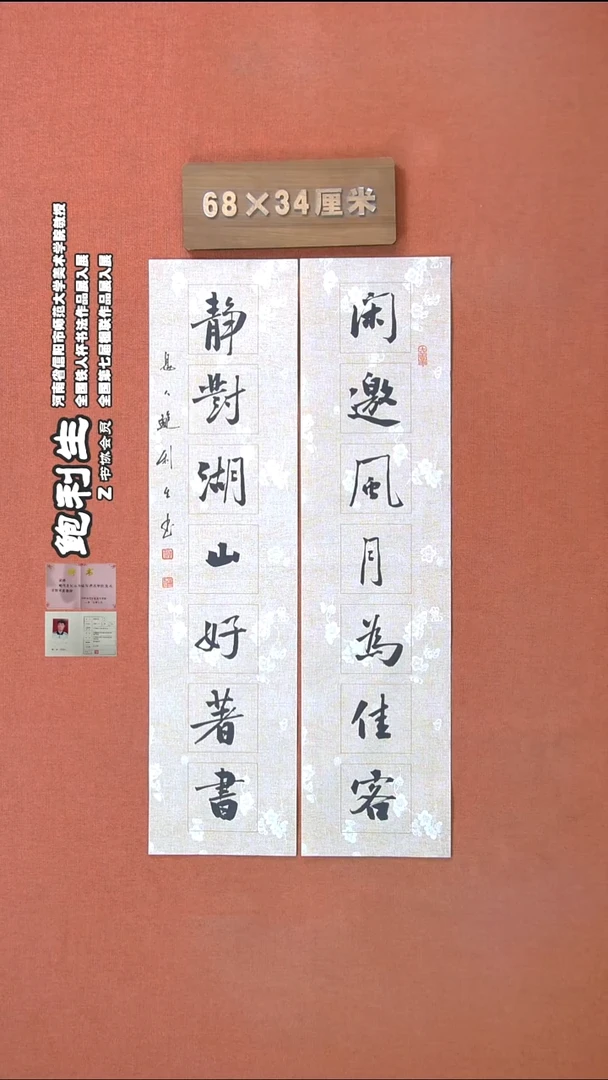 68×34厘米
闲邀風月為佳客
靜對湖山好著書
鲍利生书
鲍利生
Z 书协会员
河南省信阳市师范大学美术学院教授
全国铁人杯书法作品展入展
全国第七届楹联作品展入展